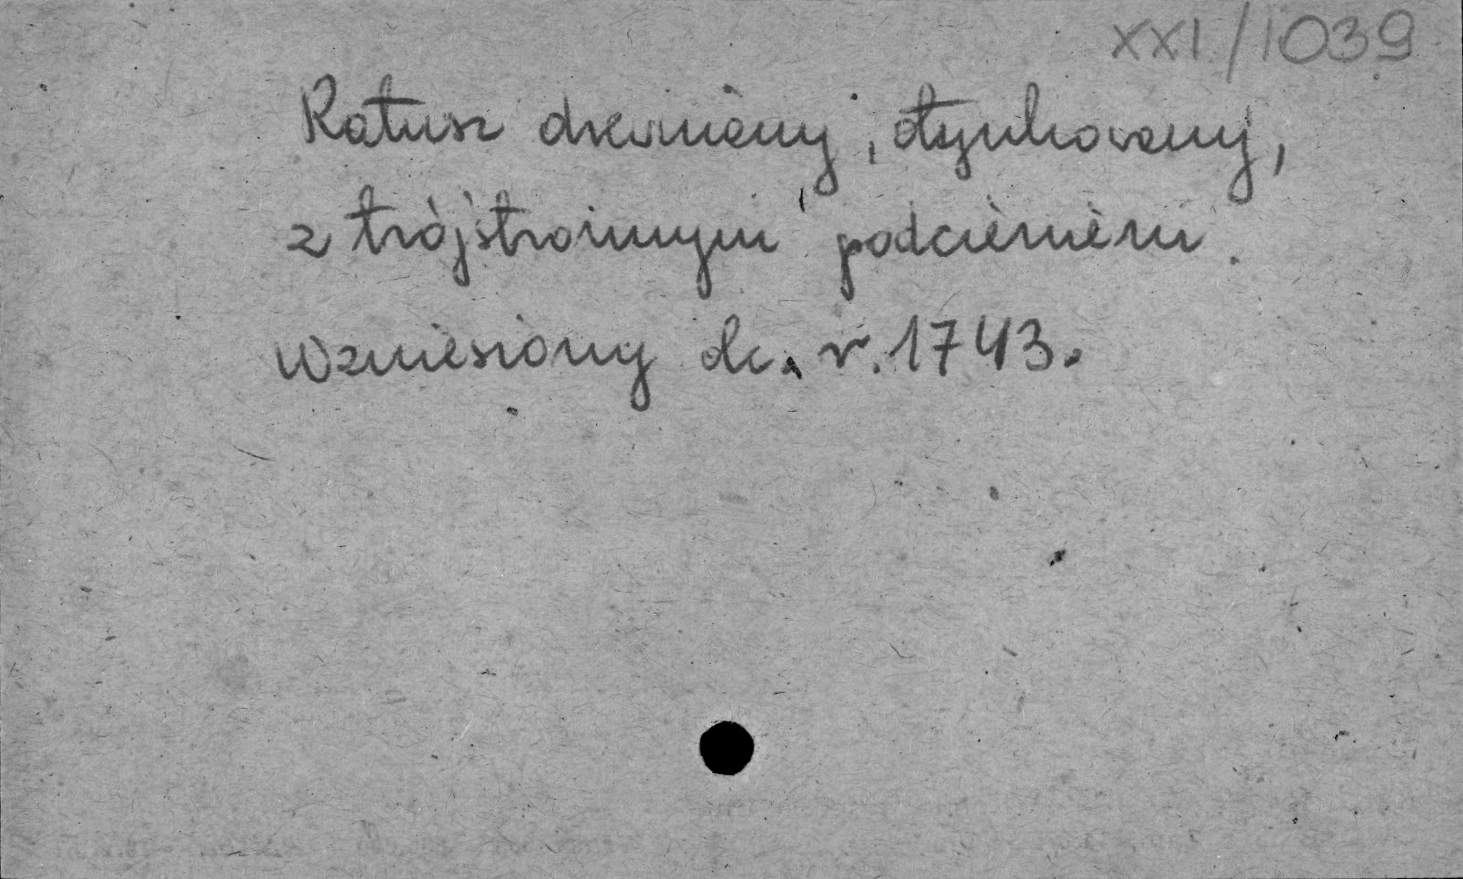 XXI/1039
Ratusz drewniany, otynkowany,
z trójstronnym podcieniem.
Wzniesiony dc. r. 1743.